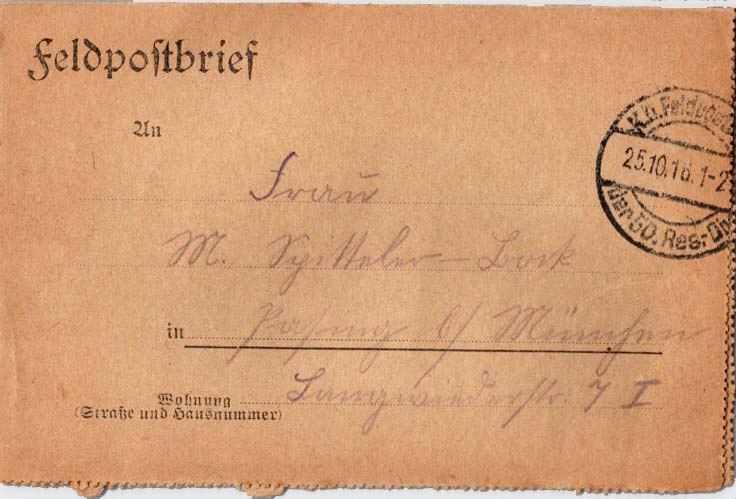 Feldpostbrief
An
Frau
M. Spitteler-Bock
in Pasing b/ München
Wohnung
(Straße und Hausnummer)
Langwiederstr. 7 I
25.10.16. 1-2
der 50. Res.-Di